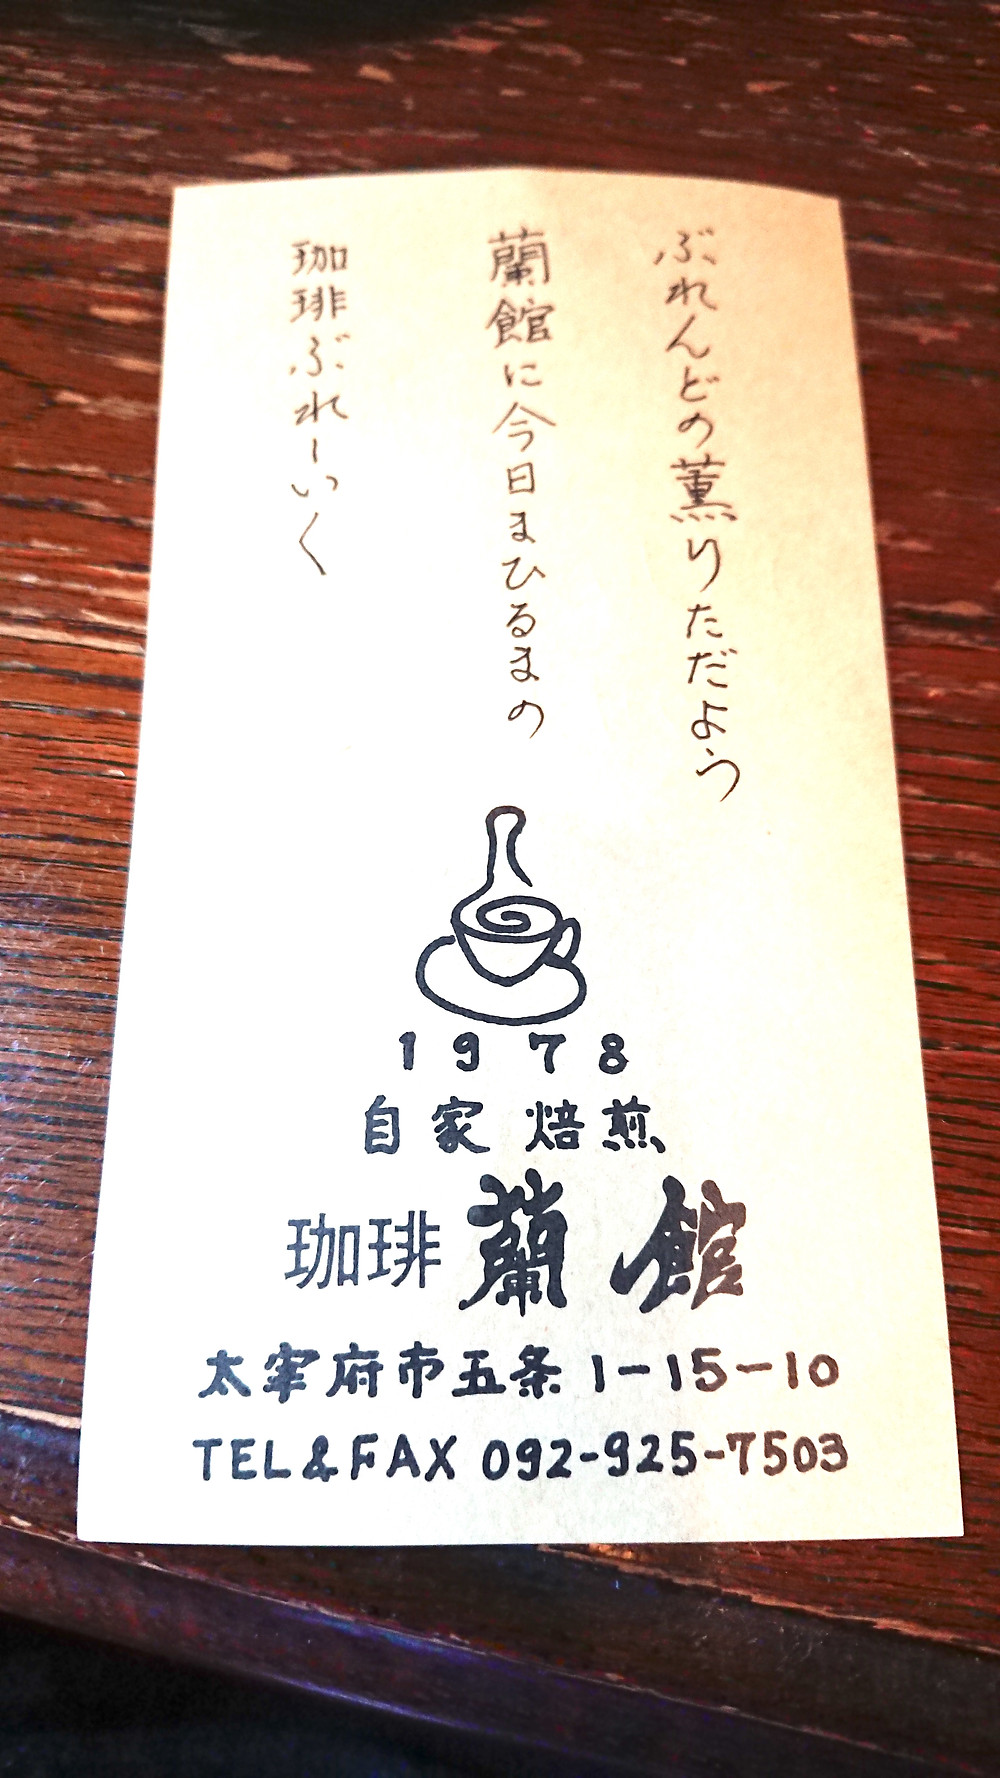 ぶれんどの薫りただよう
蘭館に今日まひるまの
珈琲ぶれーいく
1978
自家焙煎
珈琲 蘭館
太宰府市五条1-15-10
TEL&FAX 092-925-7503